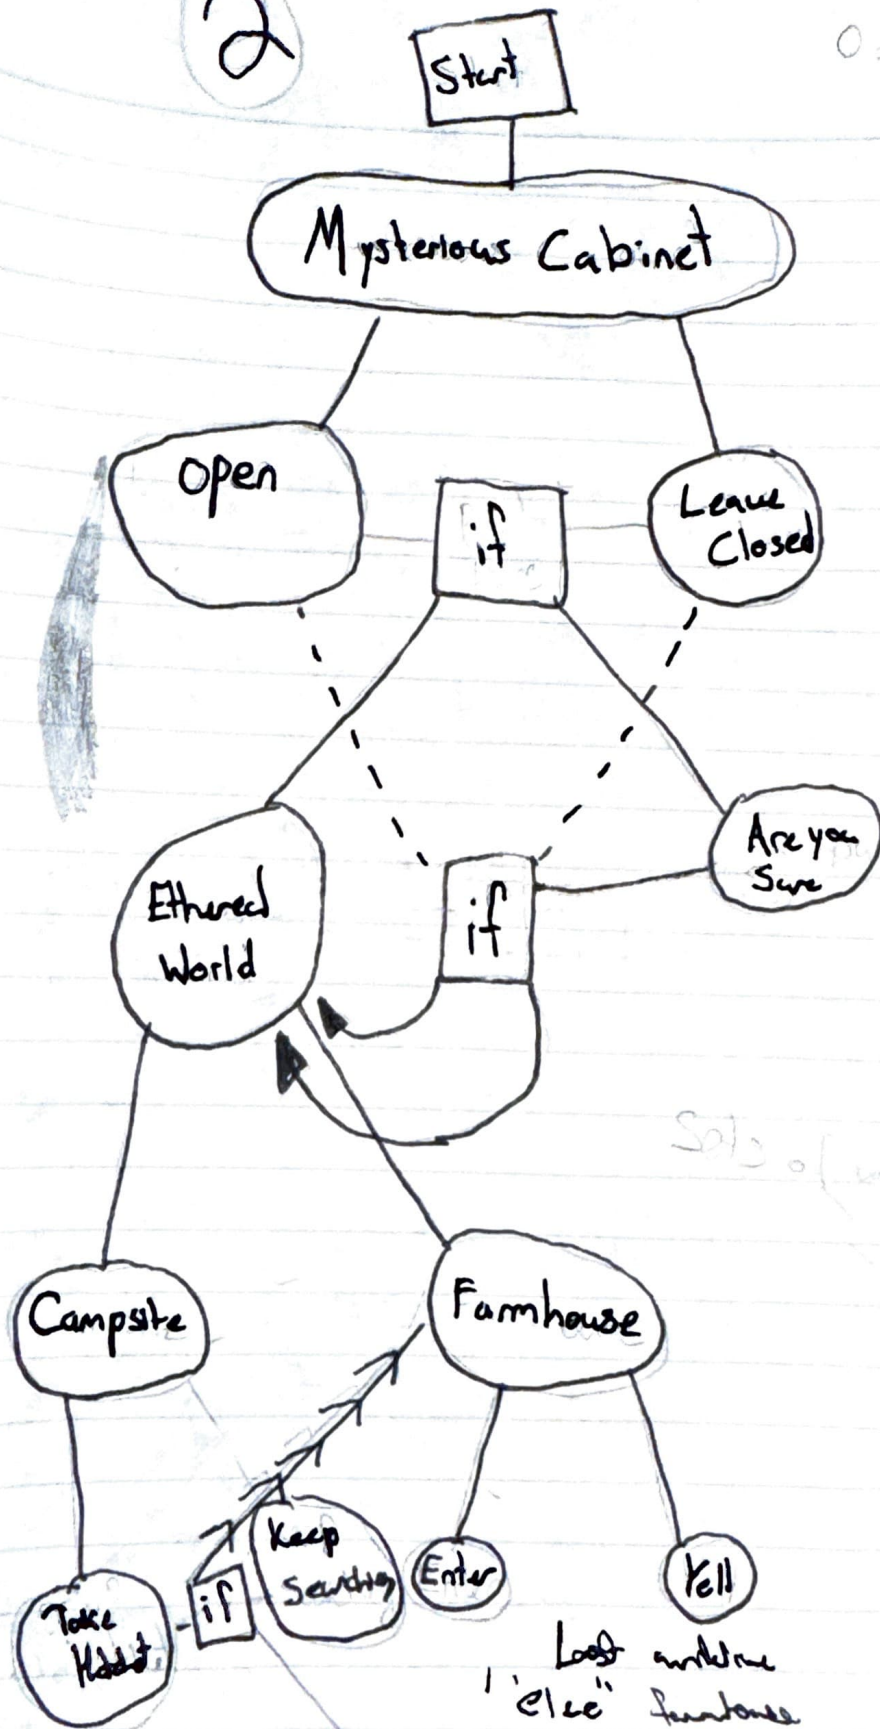 2
Start
Mysterious Cabinet
Open
if
Leave
Closed
Ethereal
World
if
Are you
Sure
Campsite
Farmhouse
Keep
Searching
Enter
Yell
Take
if
"else" farmhouse